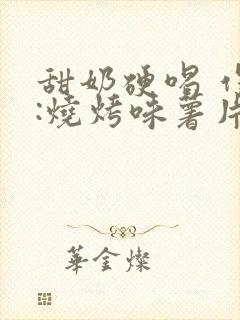 甜奶硬唱
:燒烤味薯片
華金燦